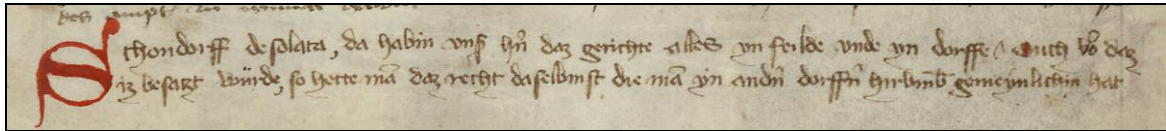 des ampt
Schondorff desolata, da habin vnß hn̄ daz gerichte alles yn felde vnde yn dorffe, Auch wo daz
iz besatzt würde, so hette mā daz recht daselbinst die mā yn andn̄ dorffn̄ hirvmb gemeynlichin hat